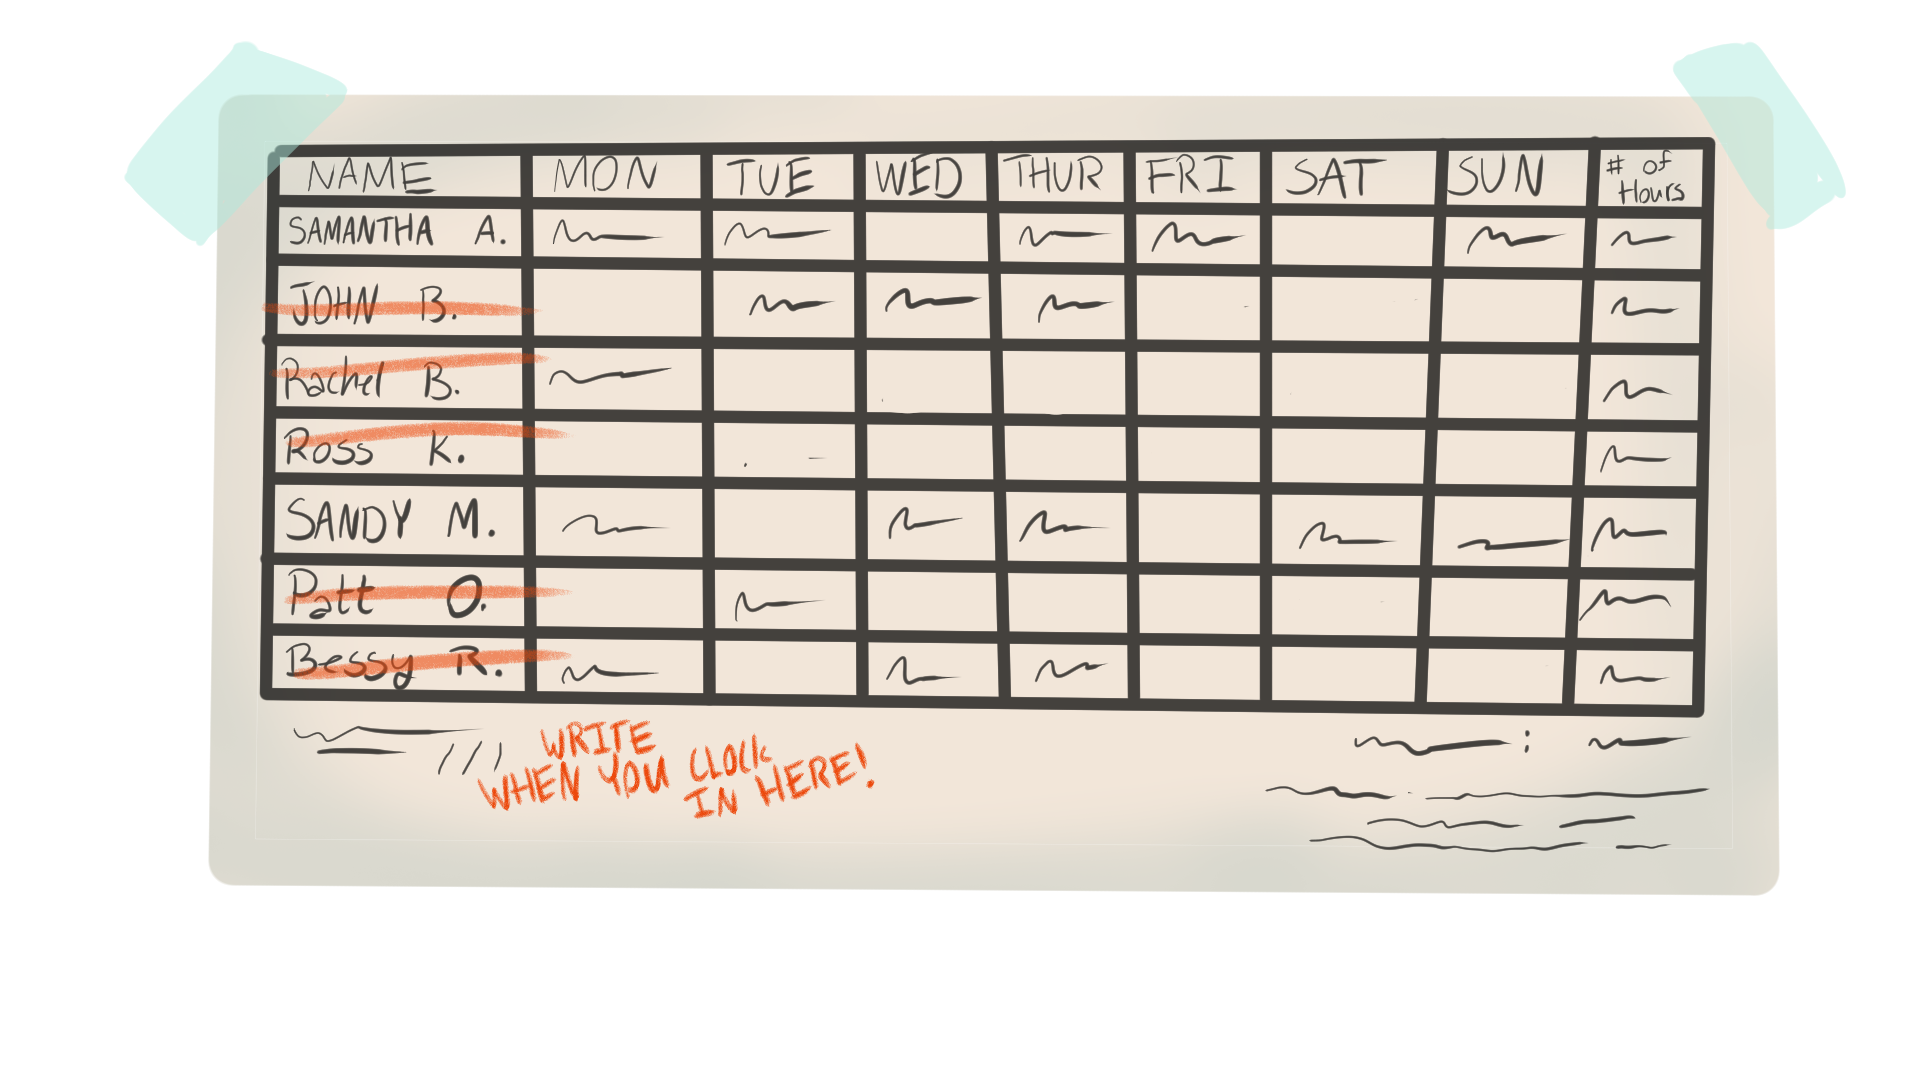 NAME MON TUE WED THUR FRI SAT SUN # of Hours
SAMANTHA A.
JOHN B.
Rachel B.
Ross K.
SANDY M.
Patt O.
Bessy R.
WRITE
WHEN YOU CLOCK
IN HERE!